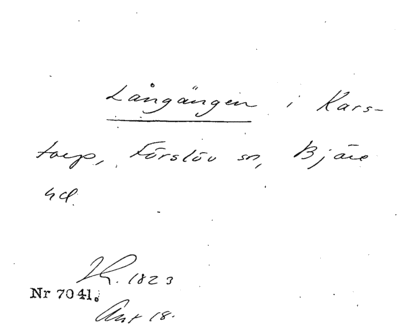 Långängen i Kars-
torp, Förslöv sn, Bjäre
hd.
1823
Nr 7041.
Akt 18.